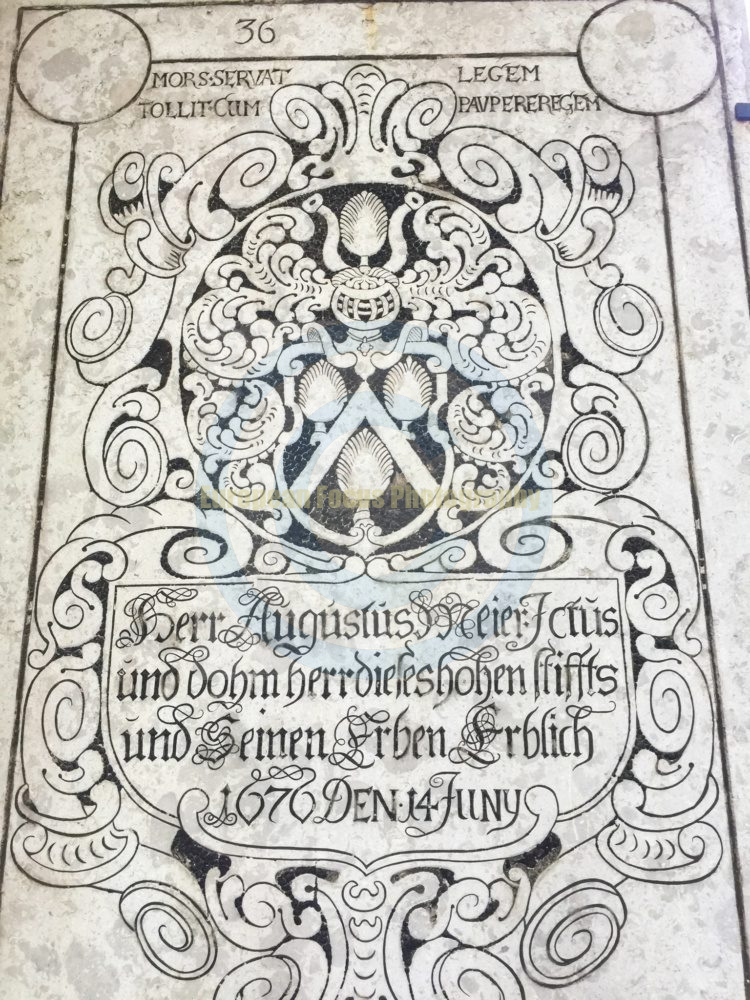 36
MORS·SERVAT LEGEM
TOLLIT·CUM PAVPERE REGEM
European Focus Photography
Herr Augustus Meier Jctus
und dohm herr dieses hohen stiffts
und Seinen Erben Erblich
1676 DEN·14·JUNY